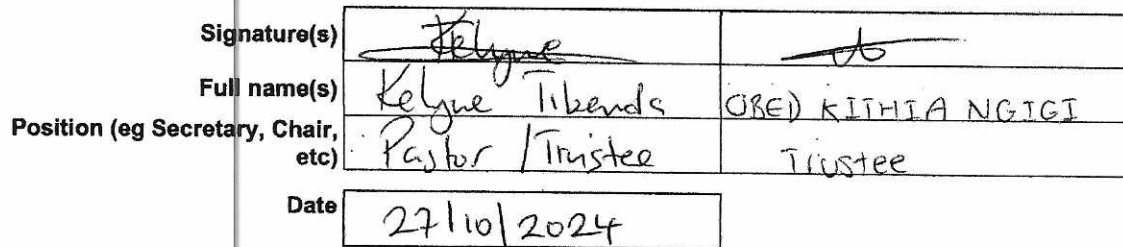 Signature(s) Kelyne
Full name(s) Kelyne Tibenda OBED KITHIA NGIGI
Position (eg Secretary, Chair, etc) Pastor / Trustee Trustee
Date 27/10/2024